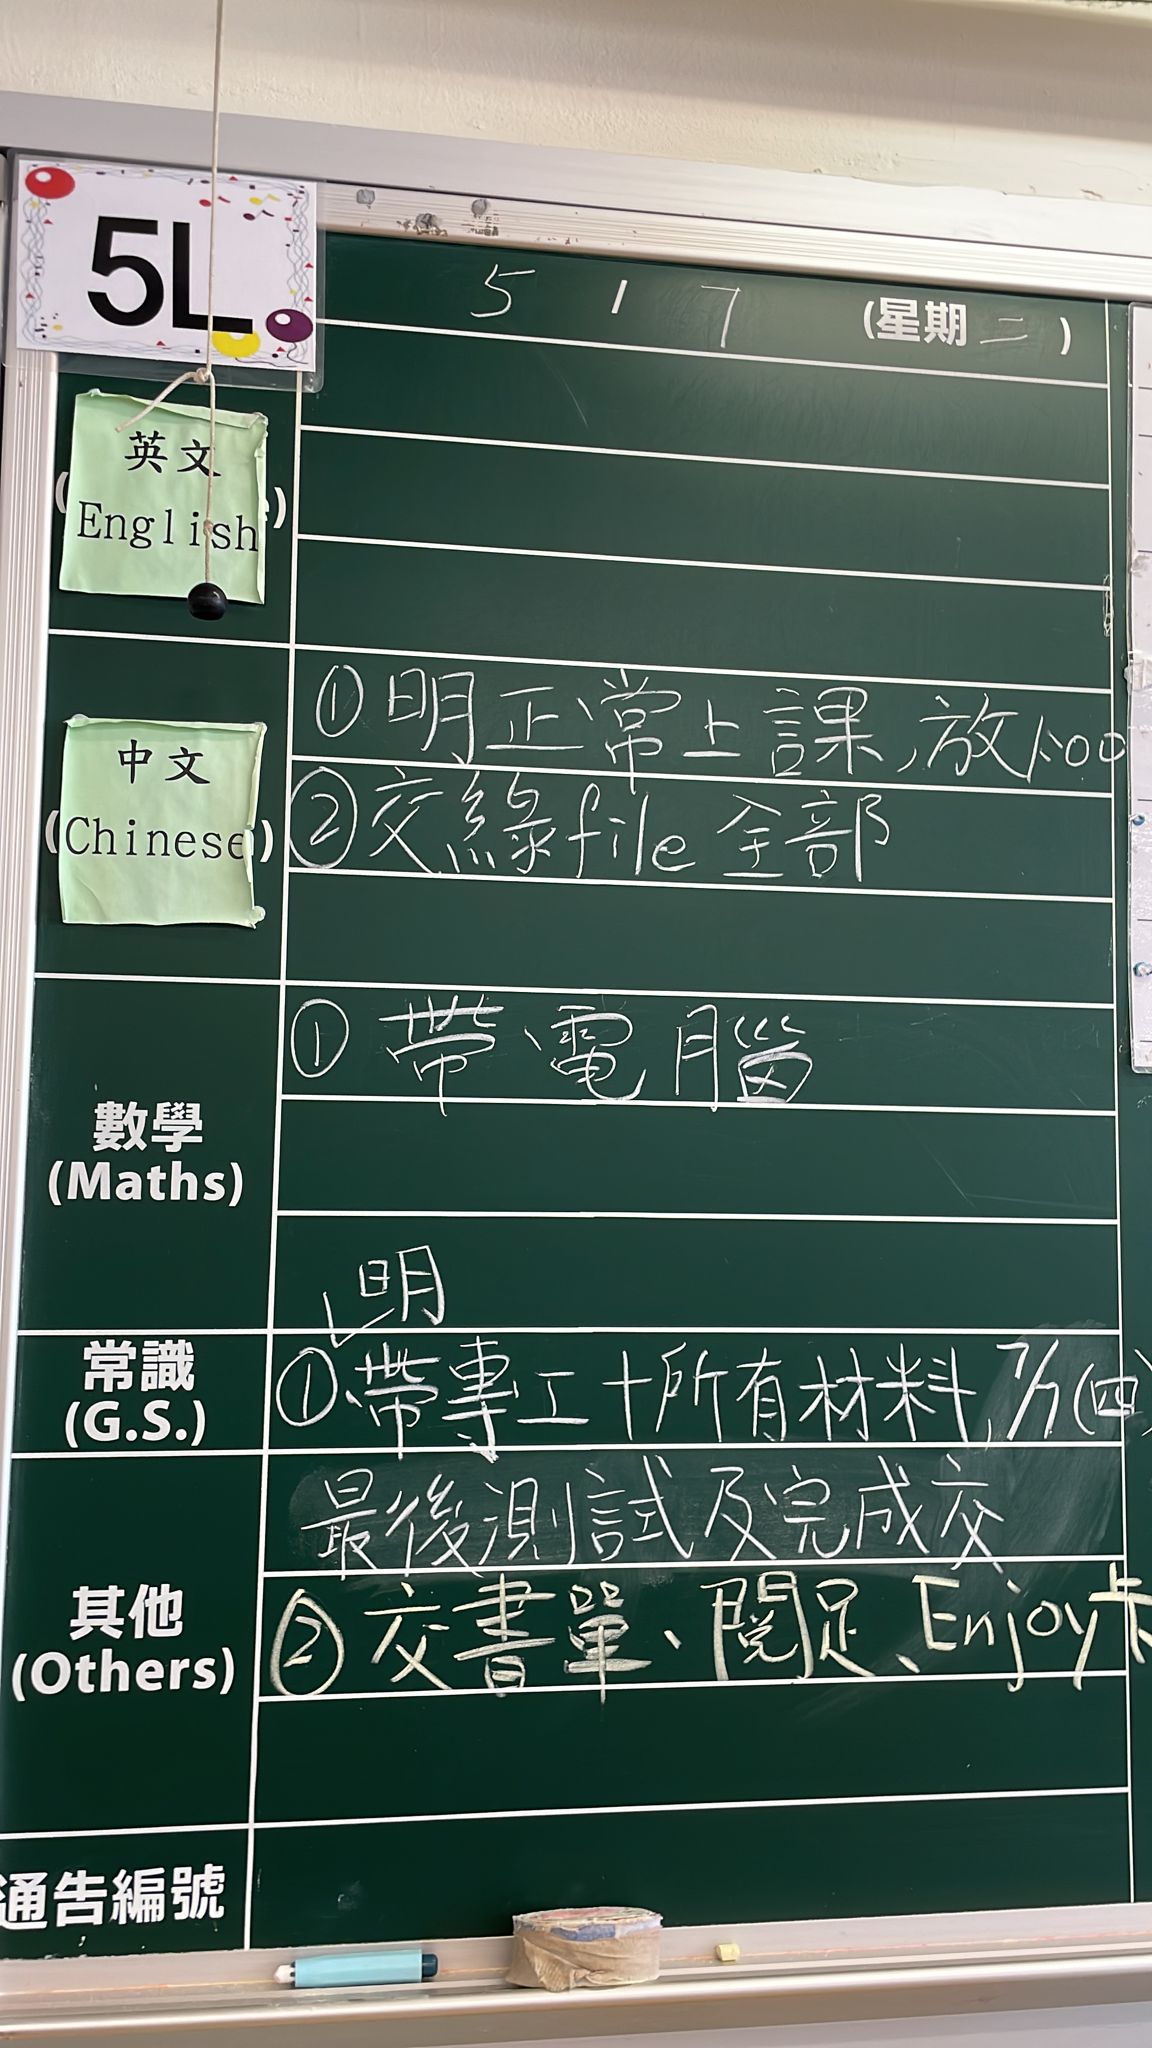 5L
5 / 7 (星期二)
英文
English
中文
(Chinese)
①明正常上課,放1:00
②交綠file全部
數學
(Maths)
①帶電腦
明
常識
(G.S.)
①帶專工+所有材料,7/7(四)
最後測試及完成交
其他
(Others)
②交書單、閱足、Enjoy卡
通告編號